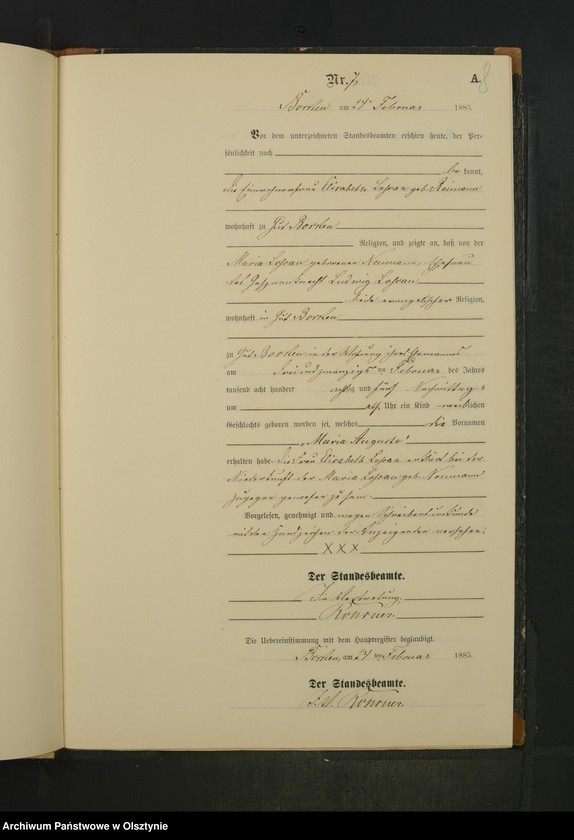 Nr. 7.
A.
8
Borken am 24 Februar 1885.
Vor dem unterzeichneten Standesbeamten erschien heute, der Per-
sönlichkeit nach
be kannt,
die Einwohnerfrau Elisabeth geb. Neumann
wohnhaft zu Gut Borken
Religion, und zeigte an, daß von der
Maria geborenen Neumann, Ehefrau
des Ludwig
beide evangelischer Religion,
wohnhaft in Gut Borken
zu Gut Borken in der Wohnung ihres Ehemannes
am drei und zwanzigs ten Februar des Jahres
tausend acht hundert achtzig und fünf Nachmittag s
um Uhr ein Kind weiblichen
Geschlechts geboren worden sei, welches die Vornamen
„Maria Auguste"
erhalten habe. Die Frau Elisabeth erklärt bei der
Niederkunft der Maria geb. Neumann
zugegen gewesen zu sein.
Vorgelesen, genehmigt und wegen Schreibensunkunde
mit den Handzeichen der Anzeigenden versehen.
XXX
Der Standesbeamte.
In Vertretung.
Die Uebereinstimmung mit dem Hauptregister beglaubigt.
Borken, am 24 ten Februar 1885.
Der Standesbeamte.
Archiwum Państwowe w Olsztynie